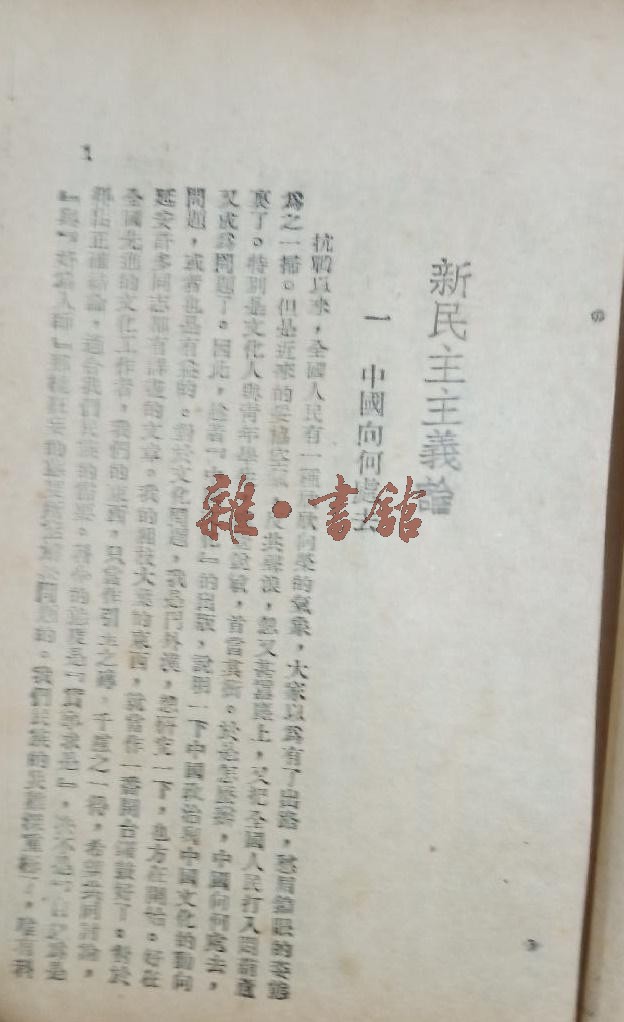 新民主主義論
一 中國向何處去
抗戰以來，全國人民有一種欣欣向榮的氣象，大家以爲有了出路，愁眉鎖眼的姿態
爲之一掃。但是近來的妥協空氣，反共聲浪，忽又甚囂塵上，又把全國人民打入悶葫蘆
裏了。特別是文化人與青年學生，感覺敏銳，首當其衝。於是怎麽辦，中國向何處去，
又成爲問題了。因此，趁着『中國文化』的出版，說明一下中國政治與中國文化的動向
問題，或者也是有益的。對於文化問題，我是門外漢，想研究一下，也方在開始。好在
延安許多同志都有詳盡的文章，我的粗枝大葉的東西，就當作一番開台鑼鼓好了。對於
全國先進的文化工作者，我們的東西，只當作引玉之磚，千慮之一得，希望共同討論，
得出正確結論，適合我們民族的需要。科學的態度是『實事求是』，決不是『自以爲是
』與『好爲人師』那種狂妄的態度所能解決問題的。我們民族的災難深重極了，唯有科
1
雜·書館